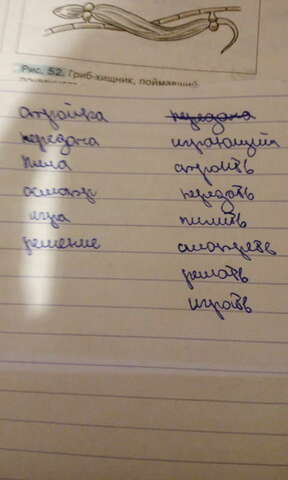 Рис. 52. Гриб-хищник, поймавший
стройка передача
передача играющий
пила строить
осмотр передать
игра пилить
решение смотреть
решать
играть